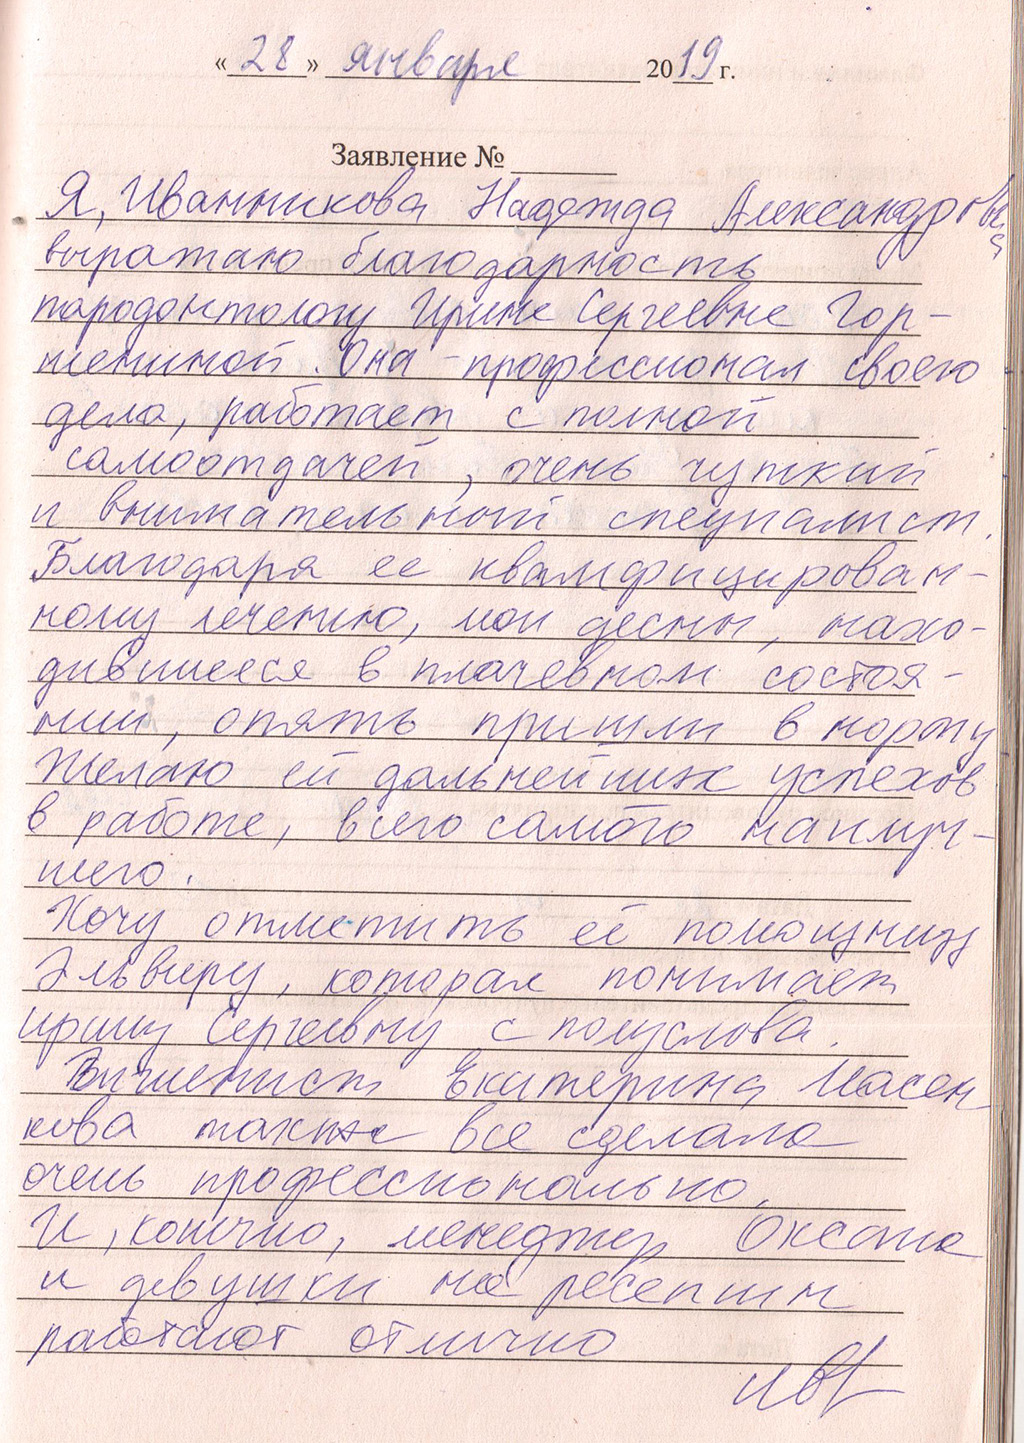 «28» января 2019 г.
Заявление № ______
Я, Иванникова Надежда Александровна
выражаю благодарность
пародонтологу Ирине Сергеевне Гор-
шениной. Она - профессионал своего
дела, работает с полной
самоотдачей, очень чуткий
и внимательный специалист.
Благодаря ее квалифицирован-
ному лечению, мои десны, нахо-
дившиеся в плачевном состоя-
нии, опять пришли в норму
Желаю ей дальнейших успехов
в работе, всего самого наилуч-
шего.
Хочу отметить её помощницу
Эльвиру, которая понимает
Ирину Сергеевну с полуслова.
Гигиенист Екатерина Масен
кова также все сделала
очень профессионально.
И, конечно, менеджер Оксана
и девушки на ресепшн
работают отлично